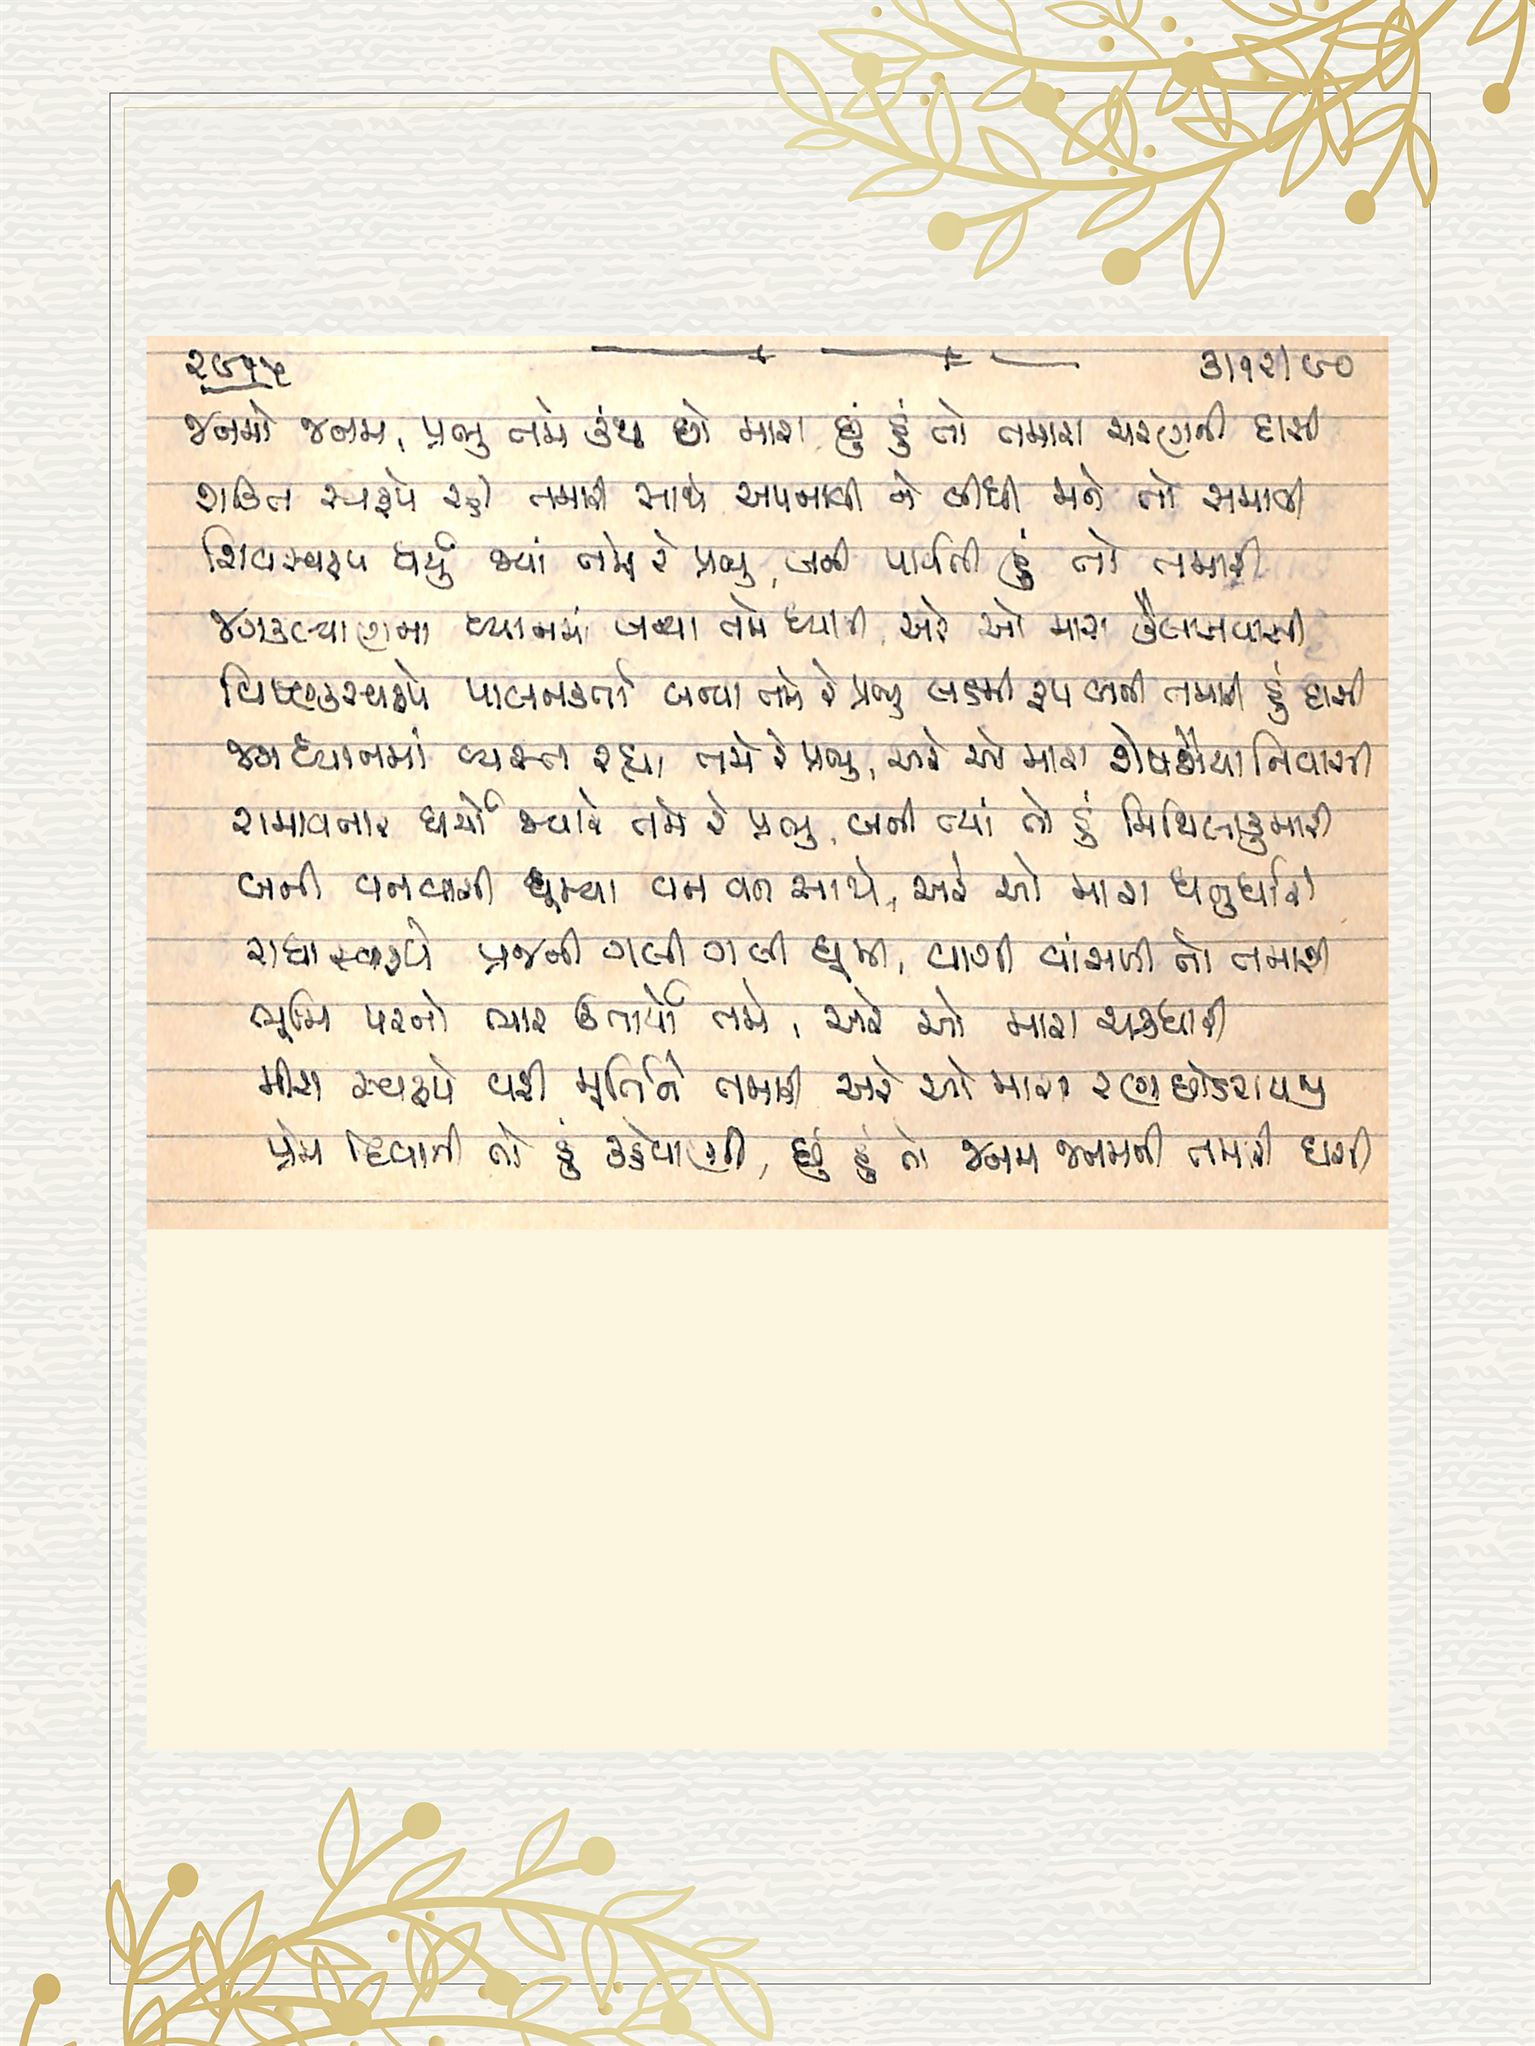 ૨૯૧૫ ૩/૧૨/૯૦
જનમો જનમ, પ્રભુ તમે કંથ છો મારા છું હું તો તમારા ચરણની દાસી
શક્તિ સ્વરૂપે રહી તમારી સાથે અપનાવી ને લીધી મને તો સમાવી
શિવસ્વરૂપ ધર્યું જ્યાં તમે રે પ્રભુ, બની પાર્વતી હું તો તમારી
જગકલ્યાણના ધ્યાનમાં બન્યા તમે ધ્યાની, અરે ઓ મારા કૈલાસવાસી
વિષ્ણુસ્વરૂપે પાલનકર્તા બન્યા તમે રે પ્રભુ લક્ષ્મી રૂપ બની તમારી હું દાસી
જગ ધ્યાનમાં વ્યસ્ત રહ્યા તમે રે પ્રભુ, અરે ઓ મારા શેષશૈયાનિવાસી
રામાવતાર ધર્યો જ્યારે તમે રે પ્રભુ, બની ત્યાં તો હું મિથિલાકુમારી
બની વનવાસી ઘૂમ્યા વન વન સાથે, અરે ઓ મારા ધનુર્ધારી
રાધાસ્વરૂપે વ્રજની ગલી ગલી ઘૂમી, વાગી વાંસળી તો તમારી
ભૂમિ પરનો ભાર ઉતાર્યો તમે, અરે ઓ મારા ચક્રધારી
મીરા સ્વરૂપે વરી મૂર્તિને તમારી અરે ઓ મારા રણછોડરાય
પ્રેમ દિવાની તો હું કહેવાણી, છું હું તો જનમ જનમની તમારી દાસી